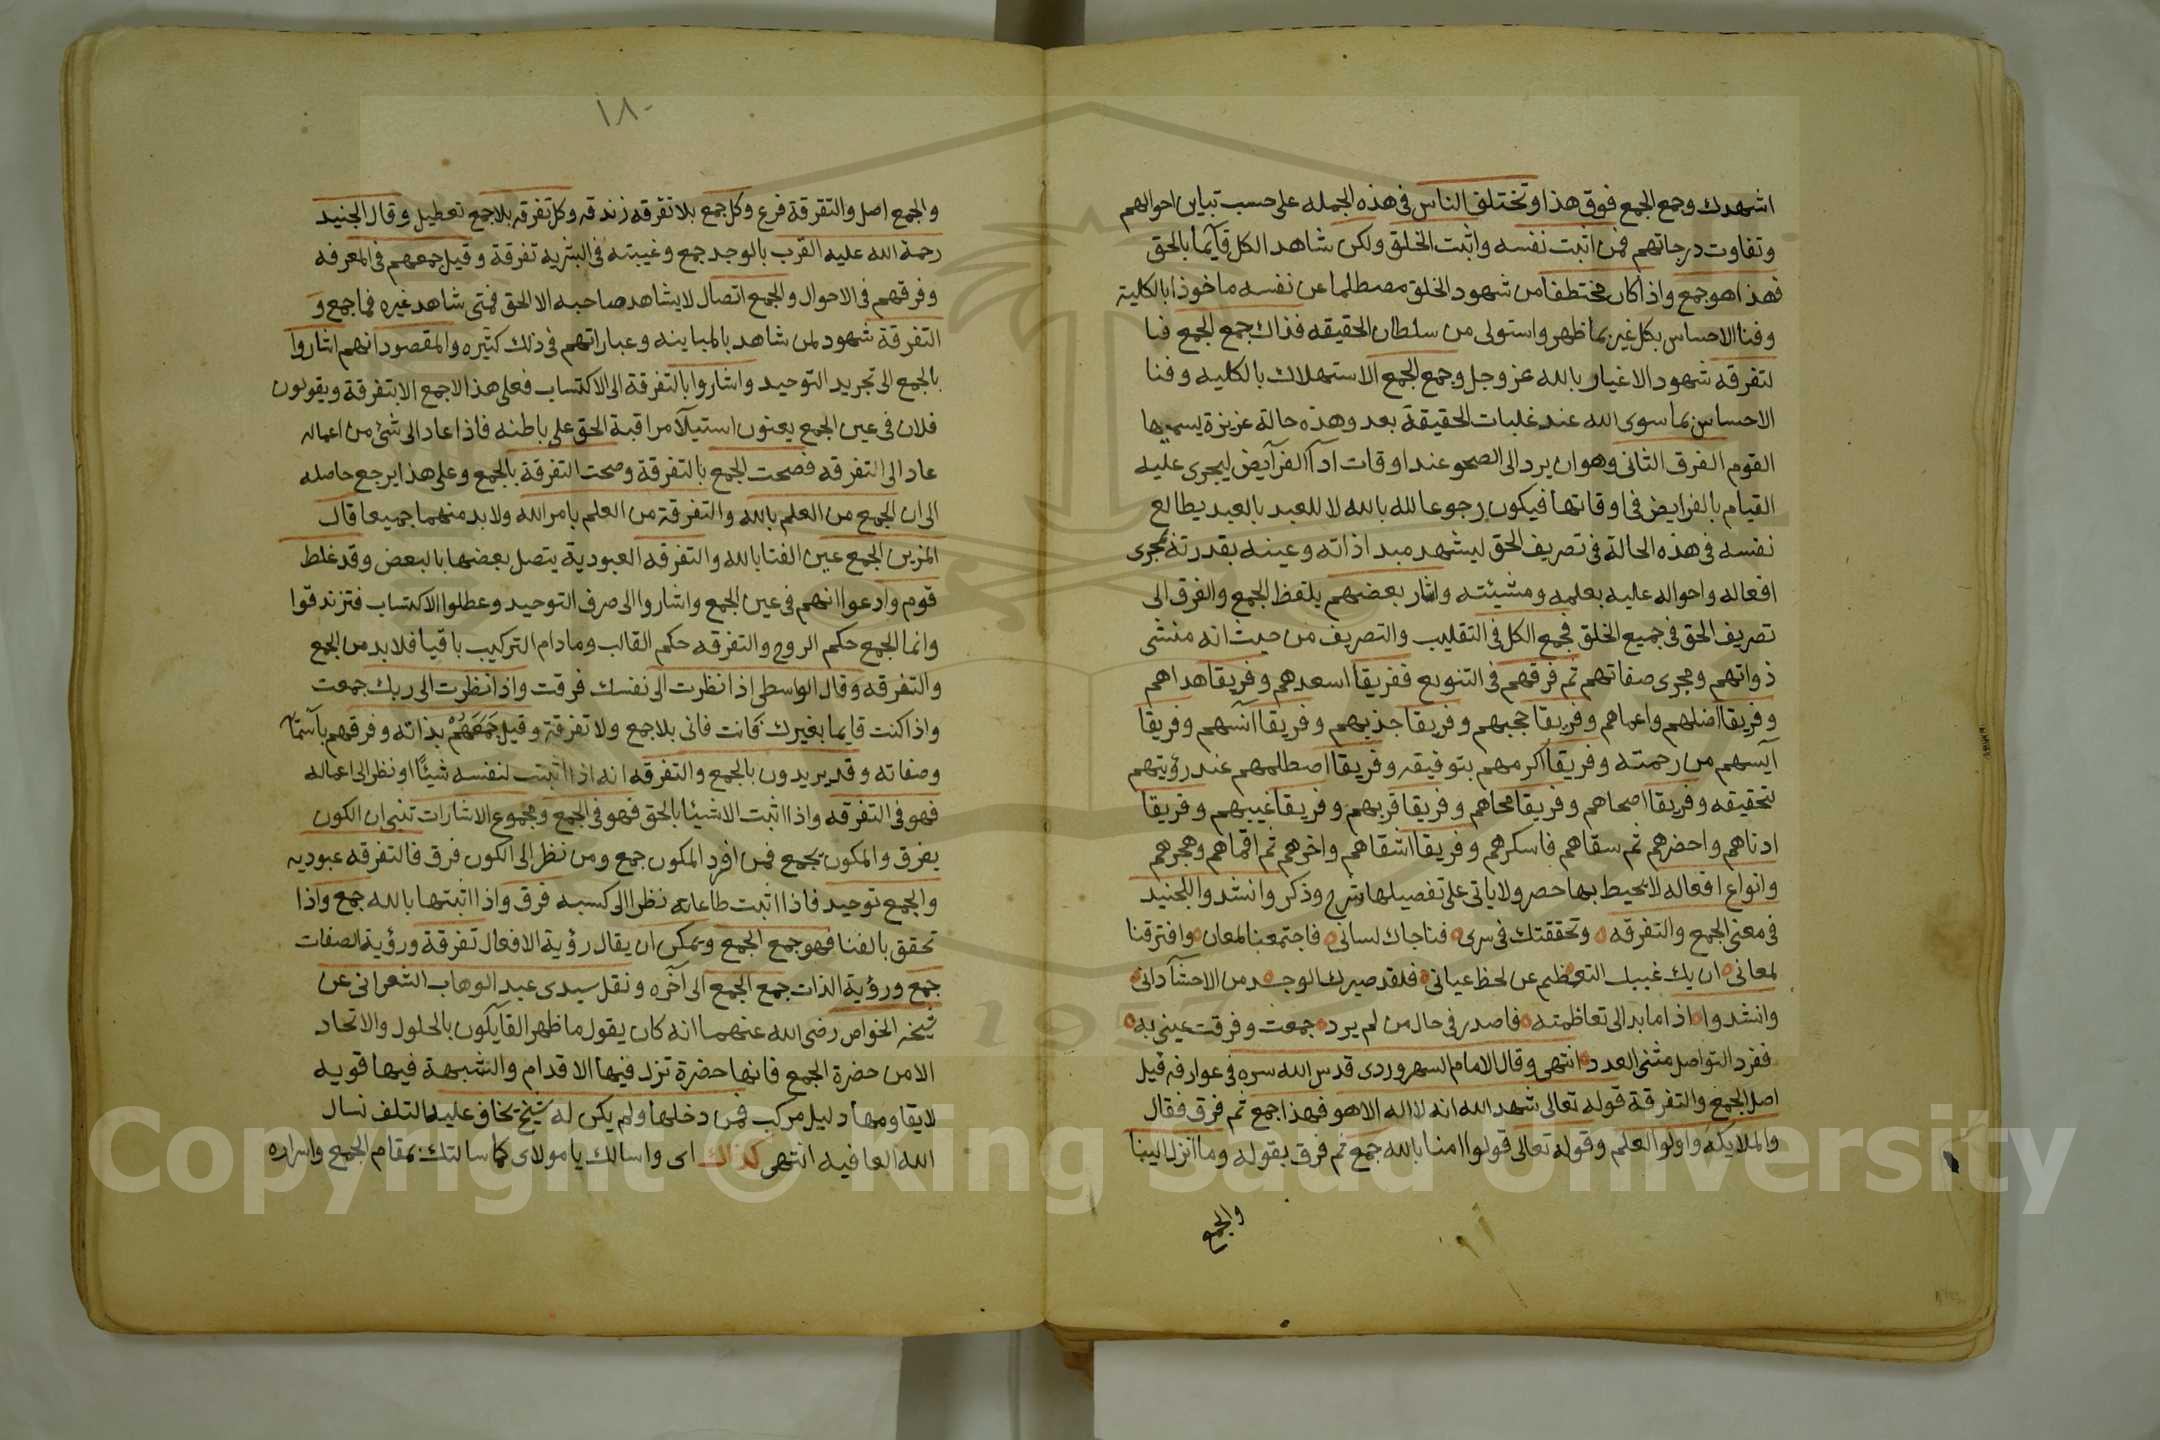 اشهدك وجمع الجمع فوق هذا وتختلف الناس فى هذه الجمله على حسب تباين احوالهم
وتفاوت درجاتهم فمن اثبت نفسه واثبت الخلق ولكن شاهد الكل قآيما بالحق
فهذا هو جمع واذا كان مختطفا من شهود الخلق مصطلما عن نفسه ماخوذا بالكلية
وفنا الاحساس بكل غير بما ظهر واستولى من سلطان الحقيقه فذاك جمع الجمع فا
لتفرقه شهود الاغيار بالله عز وجل وجمع الجمع الاستهلاك بالكليه وفنا
الاحساس بما سوى الله عند غلبات الحقيقة بعد وهذه حالة عزيزة يسميها
القوم الفرق الثانى وهو ان يرد الى الصحو عند اوقات ادآ الفرآيض ليجرى عليه
القيام بالفرايض فى اوقاتها فيكون رجوعا لله بالله لا للعبد بالعبد يطالع
نفسه فى هذه الحالة فى تصريف الحق ليشهد مبدا ذاته وعينه بقدرته مجرى
افعاله واحواله عليه بعلمه ومشيئته واشار بعضهم بلفظ الجمع والفرق الى
تصريف الحق فى جميع الخلق فجمع الكل فى التقليب والتصريف من حيث انه منشى
ذواتهم ومجرى صفاتهم ثم فرقهم فى التنويع ففريقا اسعدهم وفريقا هداهم
وفريقا اضلهم واعماهم وفريقا حجبهم وفريقا جذبهم وفريقا آنسهم وفريقا
آيسهم من رحمته وفريقا اكرمهم بتوفيقه وفريقا اصطلمهم عند رؤيتهم
لتحقيقه وفريقا اصحاهم وفريقا محاهم وفريقا قربهم وفريقا غيبهم وفريقا
ادناهم واحضرهم ثم سقاهم فاسكرهم وفريقا اشقاهم واخرهم ثم اقماهم وهجرهم
وانواع افعاله لا يحيط بها حصر ولا ياتى على تفصيلها شرح وذكر وانشدوا للجنيد
فى معنى الجمع والتفرقه وتحققتك فى سرى فناجاك لسانى فاجتمعنا لمعان وافترقنا
لمعانى ان يك غيبك التعظيم عن لحظ عيانى فلقد صيرك الوجد من الاحشآ دانى
وانشدوا اذا ما بدا لى تعاظمته فاصدر فى حال من لم يرد جمعت وفرقت عنى به
ففرد التواصل مثنى العدد انتهى وقال الامام السهروردى قدس الله سره فى عوارفه قيل
اصل الجمع والتفرقة قوله تعالى شهد الله انه لا اله الا هو فهذا جمع ثم فرق فقال
والملايكه واولوا العلم وقوله تعالى قولوا امنا بالله جمع ثم فرق بقوله وما انزل الينا
والجمع
١٨٠
والجمع اصل والتفرقة فرع وكل جمع بلا تفرقه زندقه وكل تفرقه بلا جمع تعطيل وقال الجنيد
رحمة الله عليه القرب بالوجد جمع وغيبته فى البشريه تفرقة وقيل جمعهم فى المعرفه
وفرقهم فى الاحوال والجمع اتصال لا يشاهد صاحبه الا الحق فمتى شاهد غيره فما جمع و
التفرقة شهود لمن شاهد بالمباينه وعباراتهم فى ذلك كثيره والمقصود انهم اشاروا
بالجمع الى تجريد التوحيد واشاروا بالتفرقة الى الاكتساب فعلى هذا لا جمع الا بتفرقة ويقولون
فلان فى عين الجمع يعنون استيلآ مراقبة الحق على باطنه فاذا عاد الى شئ من اعماله
عاد الى التفرقه فصحت الجمع بالتفرقة وصحت التفرقة بالجمع وعلى هذا يرجع حاصله
الى ان الجمع من العلم بالله والتفرقة من العلم بامر الله ولا بد منهما جميعا قال
المزين الجمع عين الفنا بالله والتفرقه العبودية يتصل بعضها بالبعض وقد غلط
قوم وادعوا انهم فى عين الجمع واشاروا الى صرف التوحيد وعطلوا الاكتساب فتزندقوا
وانما الجمع حكم الروح والتفرقه حكم القالب وما دام التركيب باقيا فلا بد من الجمع
والتفرقه وقال الواسطى اذا نظرت الى نفسك فرقت واذا نظرت الى ربك جمعت
واذا كنت قايما بغيرك فانت فانى بلا جمع ولا تفرقة وقيل جَمَعَهُمْ بذاته وفرقهم باسمآ
وصفاته وقد يريدون بالجمع والتفرقه انه اذا اثبت لنفسه شيئا او نظر الى اعماله
فهو فى التفرقه واذا اثبت الاشيئا بالحق فهو فى الجمع ومجموع الاشارات تنبى ان الكون
يفرق والمكون يجمع فمن افرد المكون جمع ومن نظر الى الكون فرق فالتفرقه عبوديه
والجمع توحيد فاذا اثبت طاعاته نظرا الى كسبه فرق واذا اثبتها بالله جمع واذا
تحقق بالفنا فهو جمع الجمع ويمكن ان يقال رؤية الافعال تفرقة ورؤية الصفات
جمع ورؤية الذات جمع الجمع الى آخره ونقل سيدى عبد الوهاب الشعرانى عن
شيخه الخواص رضى الله عنهما انه كان يقول ما ظهر القآيلون بالحلول والاتحاد
الا من حضرة الجمع فانها حضرة تزل فيها الاقدام والشبهة فيها قويه
لا يقاومها دليل مركب فمن دخلها ولم يكن له شيخ يخاف عليه التلف نسال
الله العافيه انتهى كذلك اى واسالك يا مولاى كما سالتك بمقام الجمع واسراره
Copyright © King Saud University
1957